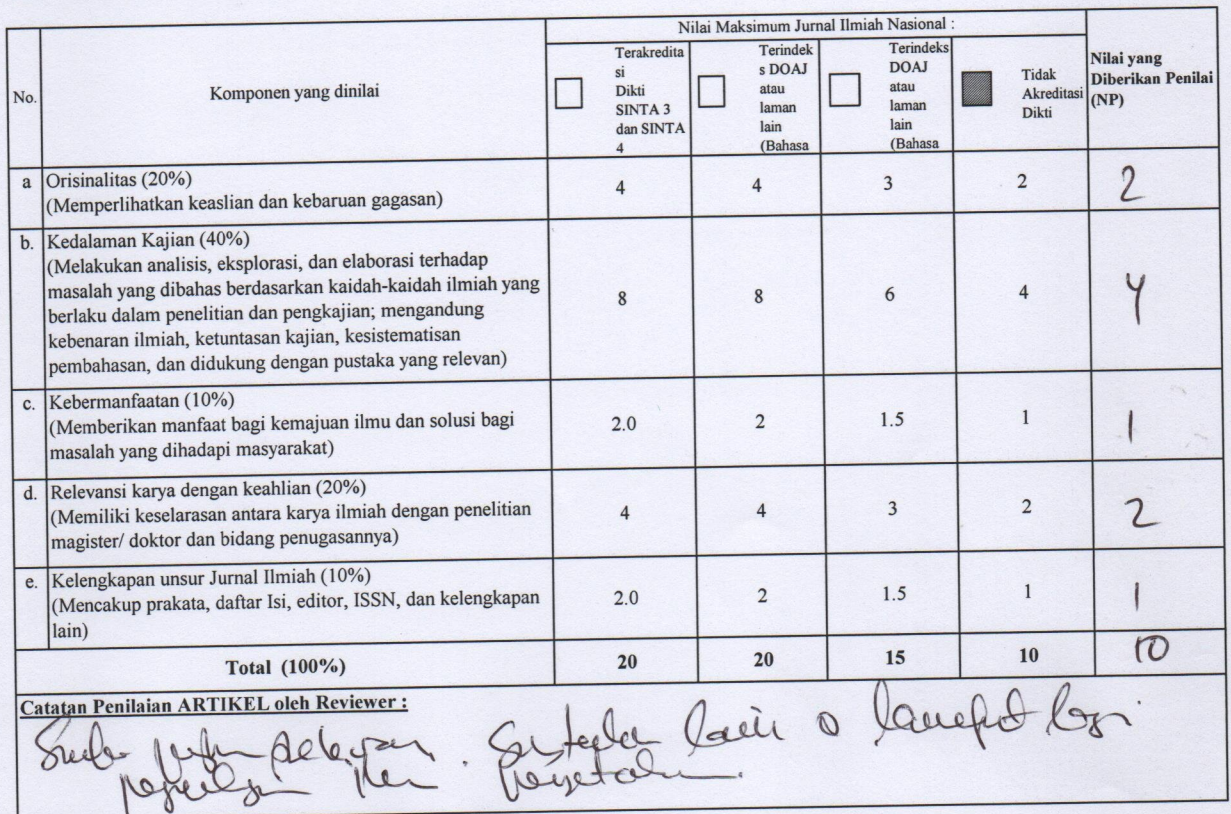 Nilai Maksimum Jurnal Ilmiah Nasional :
No.
Komponen yang dinilai
Terakredita
si
Dikti
SINTA 3
dan SINTA
4
Terindek
s DOAJ
atau
laman
lain
(Bahasa
Terindeks
DOAJ
atau
laman
lain
(Bahasa
Tidak
Akreditasi
Dikti
Nilai yang
Diberikan Penilai
(NP)
a Orisinalitas (20%)
(Memperlihatkan keaslian dan kebaruan gagasan)
4 4 3 2 2
b. Kedalaman Kajian (40%)
(Melakukan analisis, eksplorasi, dan elaborasi terhadap
masalah yang dibahas berdasarkan kaidah-kaidah ilmiah yang
berlaku dalam penelitian dan pengkajian; mengandung
kebenaran ilmiah, ketuntasan kajian, kesistematisan
pembahasan, dan didukung dengan pustaka yang relevan)
8 8 6 4 4
c. Kebermanfaatan (10%)
(Memberikan manfaat bagi kemajuan ilmu dan solusi bagi
masalah yang dihadapi masyarakat)
2.0 2 1.5 1 1
d. Relevansi karya dengan keahlian (20%)
(Memiliki keselarasan antara karya ilmiah dengan penelitian
magister/ doktor dan bidang penugasannya)
4 4 3 2 2
e. Kelengkapan unsur Jurnal Ilmiah (10%)
(Mencakup prakata, daftar Isi, editor, ISSN, dan kelengkapan
lain)
2.0 2 1.5 1 1
Total (100%) 20 20 15 10 10
Catatan Penilaian ARTIKEL oleh Reviewer :
lain